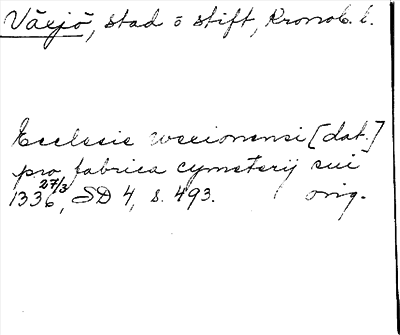 Växjö, stad o stift, Kronob. l.
Ecclesie wexionensi [dat.]
pro fabrica cymeterij sui
1336 27/3, SD 4, s. 493. orig.